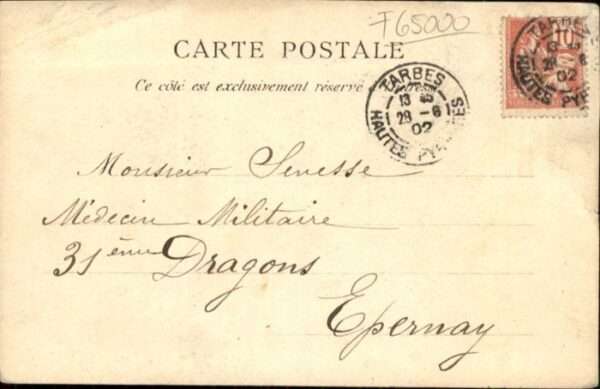 F65000
CARTE POSTALE
Ce côté est exclusivement réservé
TARBES
13
28 - 6
02
HAUTES PYRÉNÉES
TARBES
28 6
02
HAUTES PYR
10
Monsieur
Médecin Militaire
31ème Dragons
Epernay